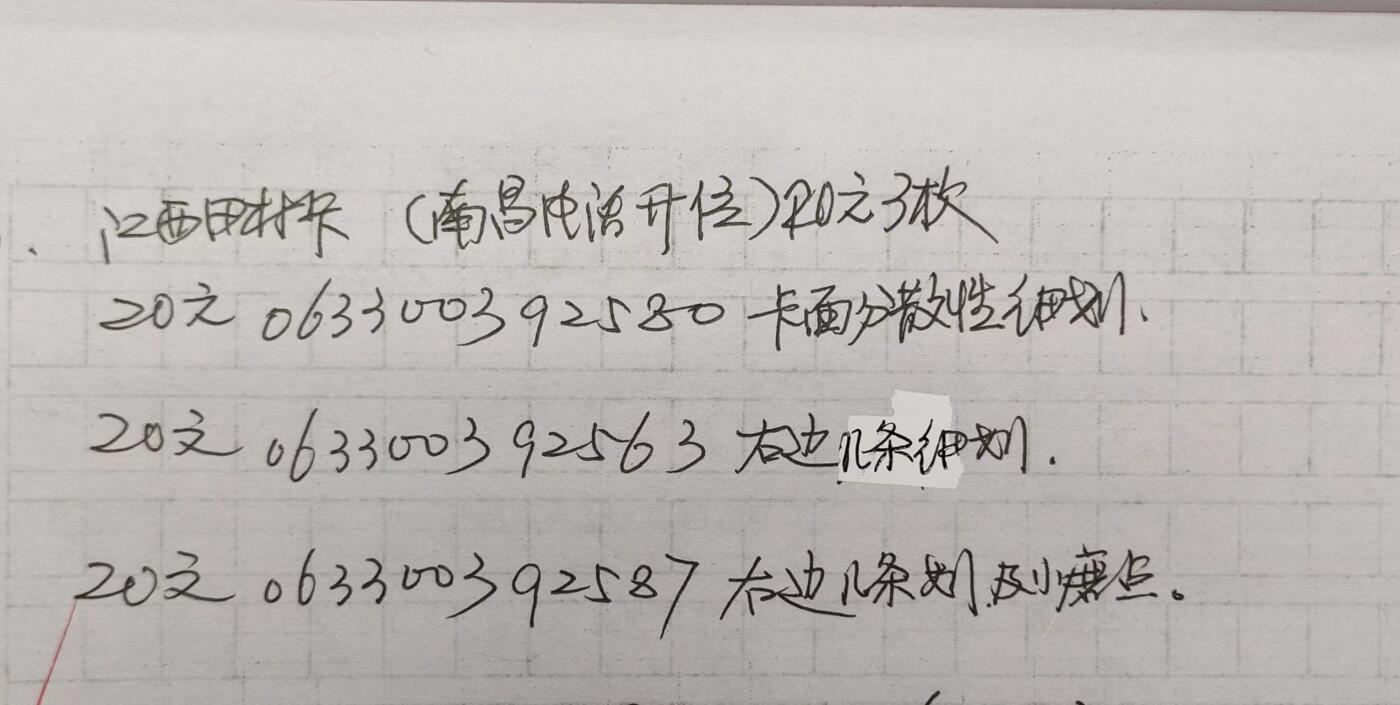 江西田村卡 (南昌电话开位)20元3枚
20元 063300392580 卡面分散性细划.
20元 063300392563 右边几条细划.
20元 063300392587 右边几条划及小磨点。